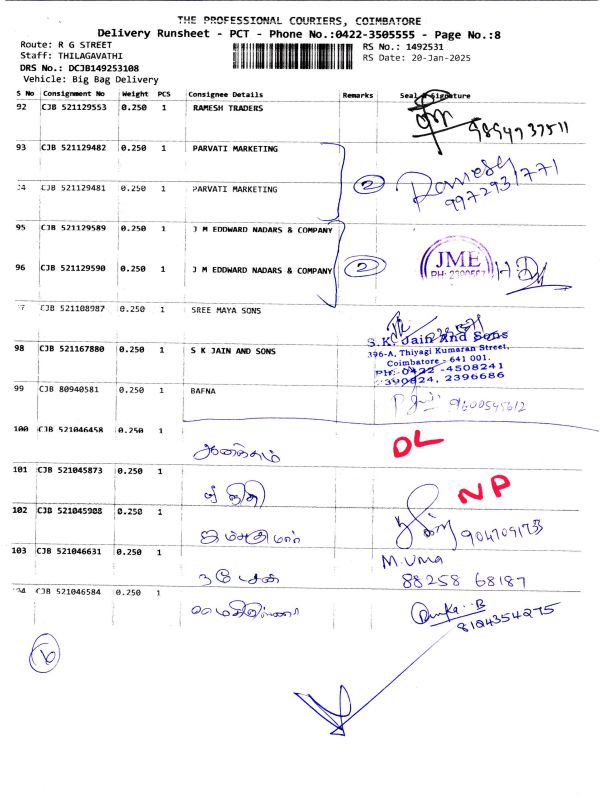 THE PROFESSIONAL COURIERS, COIMBATORE
Delivery Runsheet - PCT - Phone No.:0422-3505555 - Page No.:8
Route: R G STREET
RS No.: 1492531
Staff: THILAGAVATHI
RS Date: 20-Jan-2025
DRS No.: DCJB149253108
Vehicle: Big Bag Delivery
S No Consignment No Weight PCS Consignee Details Remarks Seal & Signature
92 CJB 521129553 0.250 1 RAMESH TRADERS
93 CJB 521129482 0.250 1 PARVATI MARKETING
CJB 521129481 0.250 1 PARVATI MARKETING 2 Ramesh
9972931771
95 CJB 521129589 0.250 1 J M EDDWARD NADARS & COMPANY
96 CJB 521129590 0.250 1 J M EDDWARD NADARS & COMPANY 2 JME
CJB 521108987 0.250 1 SREE MAYA SONS
98 CJB 521167880 0.250 1 S K JAIN AND SONS
S.K. Jain And Sons
396-A, Thiyagi Kumaran Street,
Coimbatore - 641 001.
Ph: 0422 -4508241
2390824, 2396686
99 CJB 80940581 0.250 1 BAFNA 9600545612
100 CJB 521046458 0.250 1 DL
101 CJB 521045873 0.250 1 NP
102 CJB 521045908 0.250 1 9047091733
103 CJB 521046631 0.250 1 M. Uma
88258 68187
CJB 521046584 0.250 1
8124354275